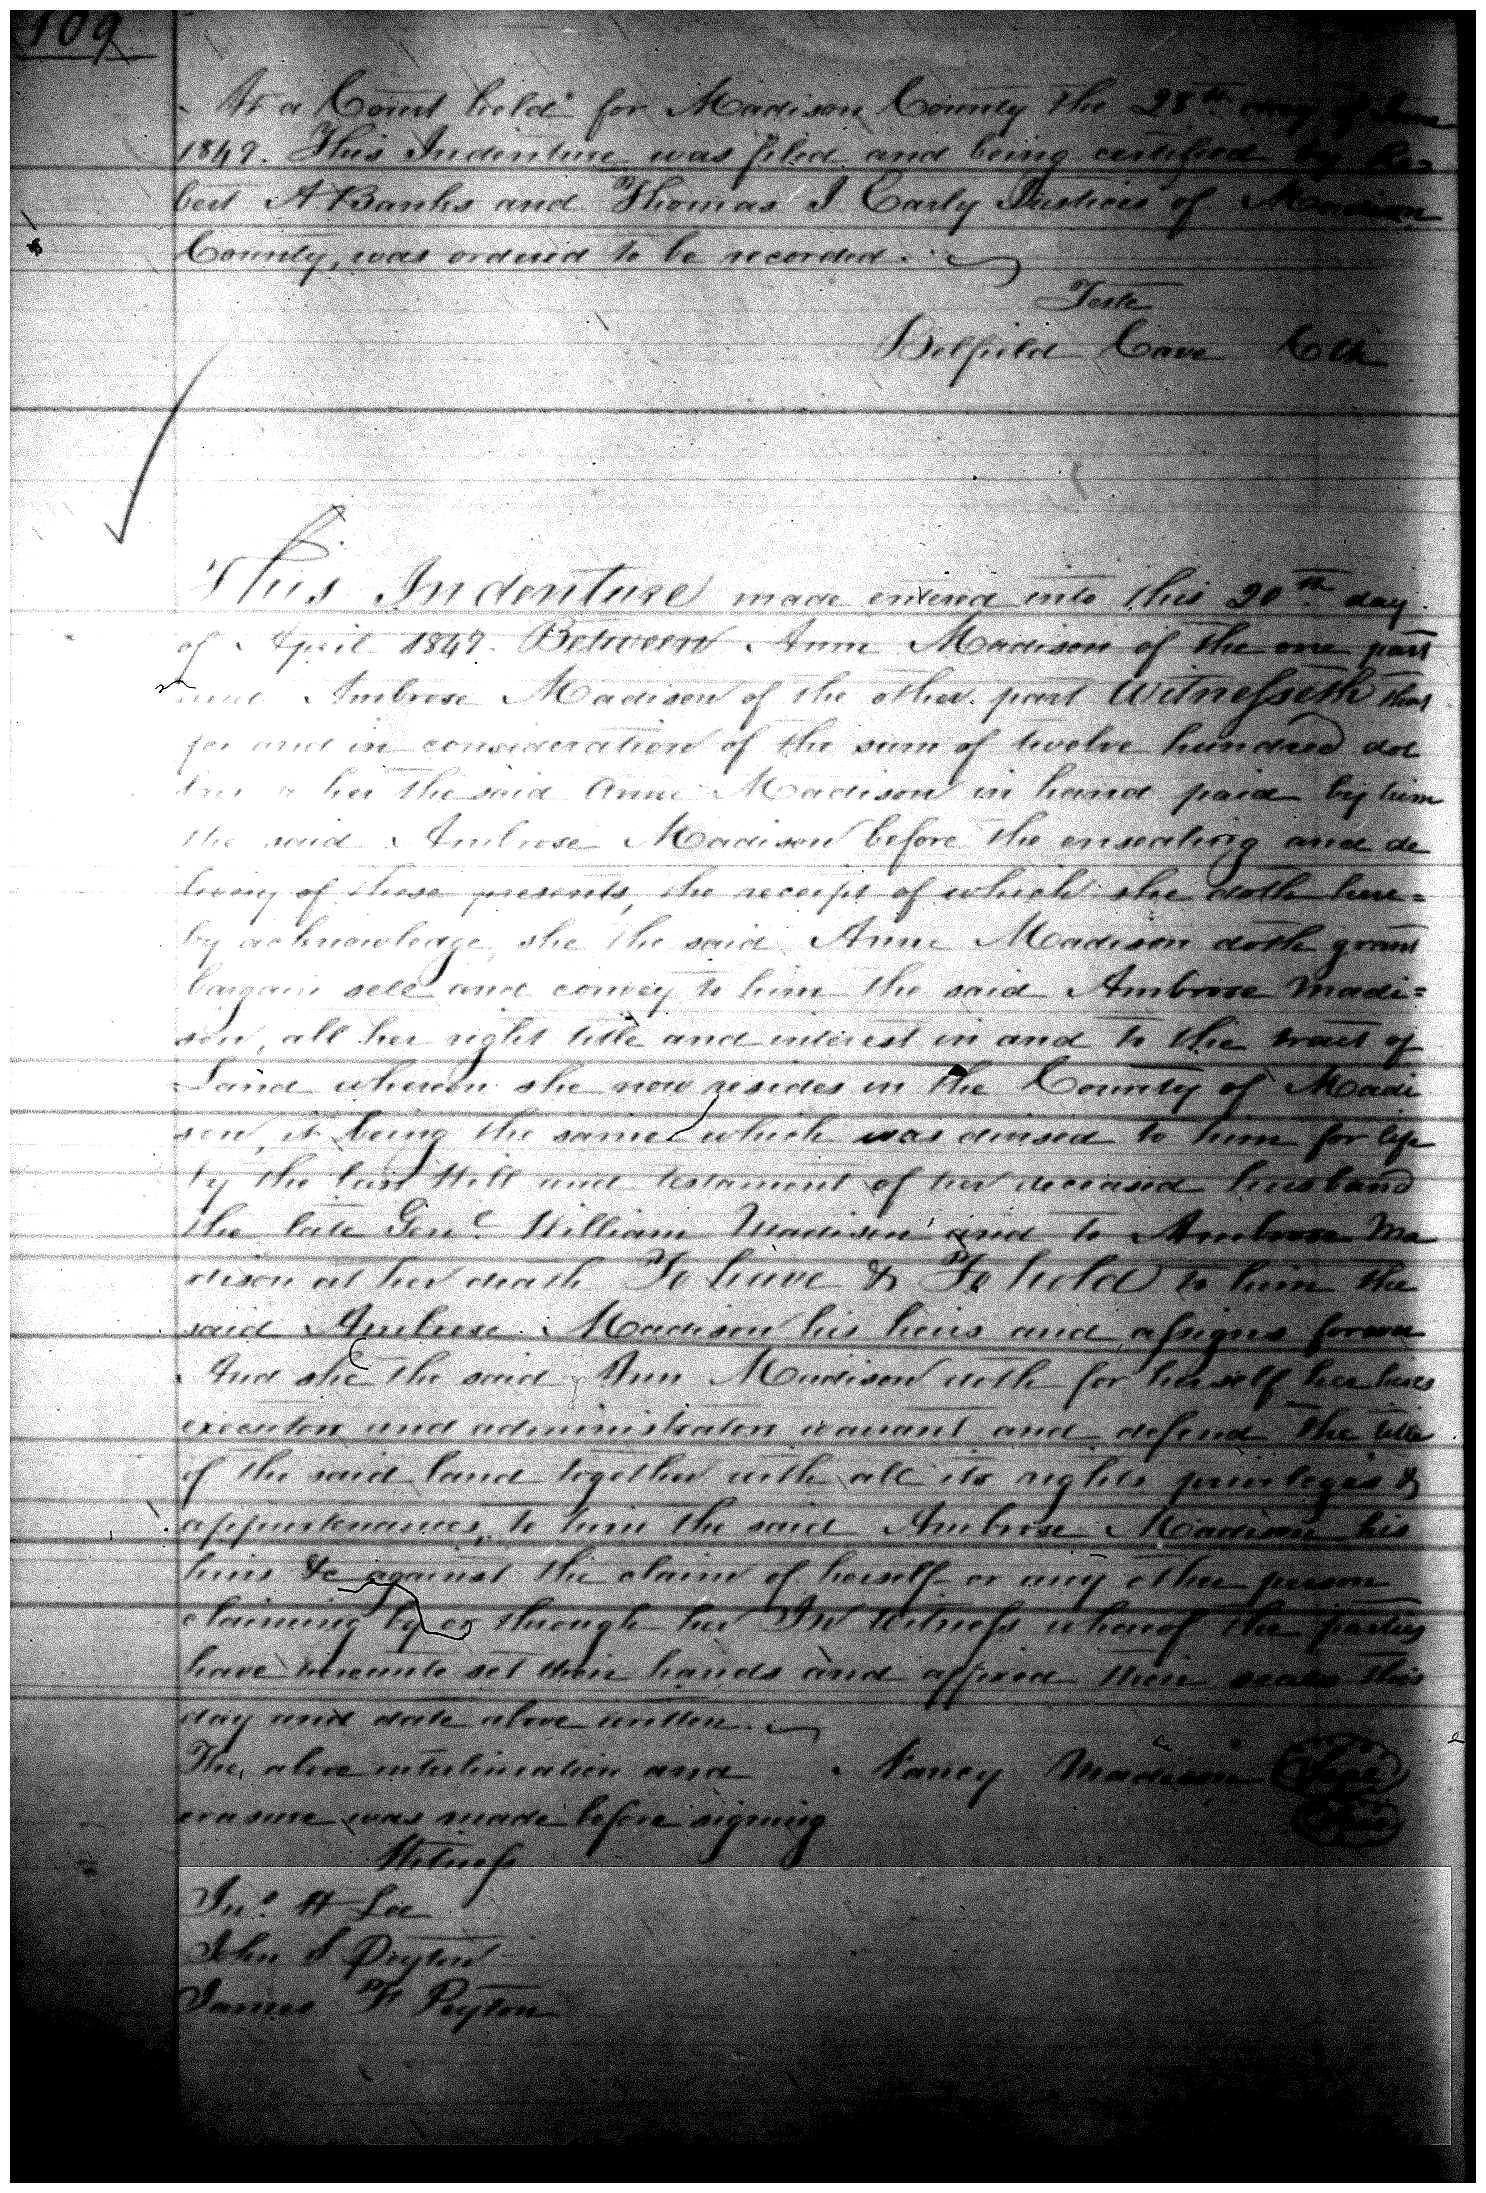 109
At a Court held for Madison County the 28th day of June
1849. This Indenture was filed and being certified by Ro=
bert A Banks and Thomas J Early Justices of Madison
County, was ordered to be recorded.
Teste
Belfield Cave Clk
This Indenture made entered into this 20th day
of April 1849. Between Ann Madison of the one part
and Ambrose Madison of the other part Witnesseth that
for and in consideration of the sum of twelve hundred dol
her the said Anne Madison in hand paid by him
the said Ambrose Madison before the ensealing and de
livery of these presents, the receipt of which she doth here=
by acknowledge she the said Anne Madison doth grant
bargain sell and convey to him the said Ambrose Madi=
son, all her right title and interest in and to the tract of
Land wheron she now resides in the County of Madi
son, it being the same which was devised to him for life
by the last Will and testament of her deceased husband
the late Genl. William Madison, and to Ambrose Ma
dison at her death To have & To hold to him the
said Ambrose Madison his heirs and assigns forever
And she the said Ann Madison doth for herself her heirs
executors and administrators warrant and defend the title
of the said land together with all its rights privileges &
appurtenances, to him the said Ambrose Madison his
heirs &c against the claim of herself or any other person
claiming by or through her In Witness whereof the parties
have hereunto set their hands and affixed their seals this
day and date above written.
The above interliniation and Nancy Madison
erasure was made before signing
Witness
Jno. H Lee
John S Peyton
James F Peyton